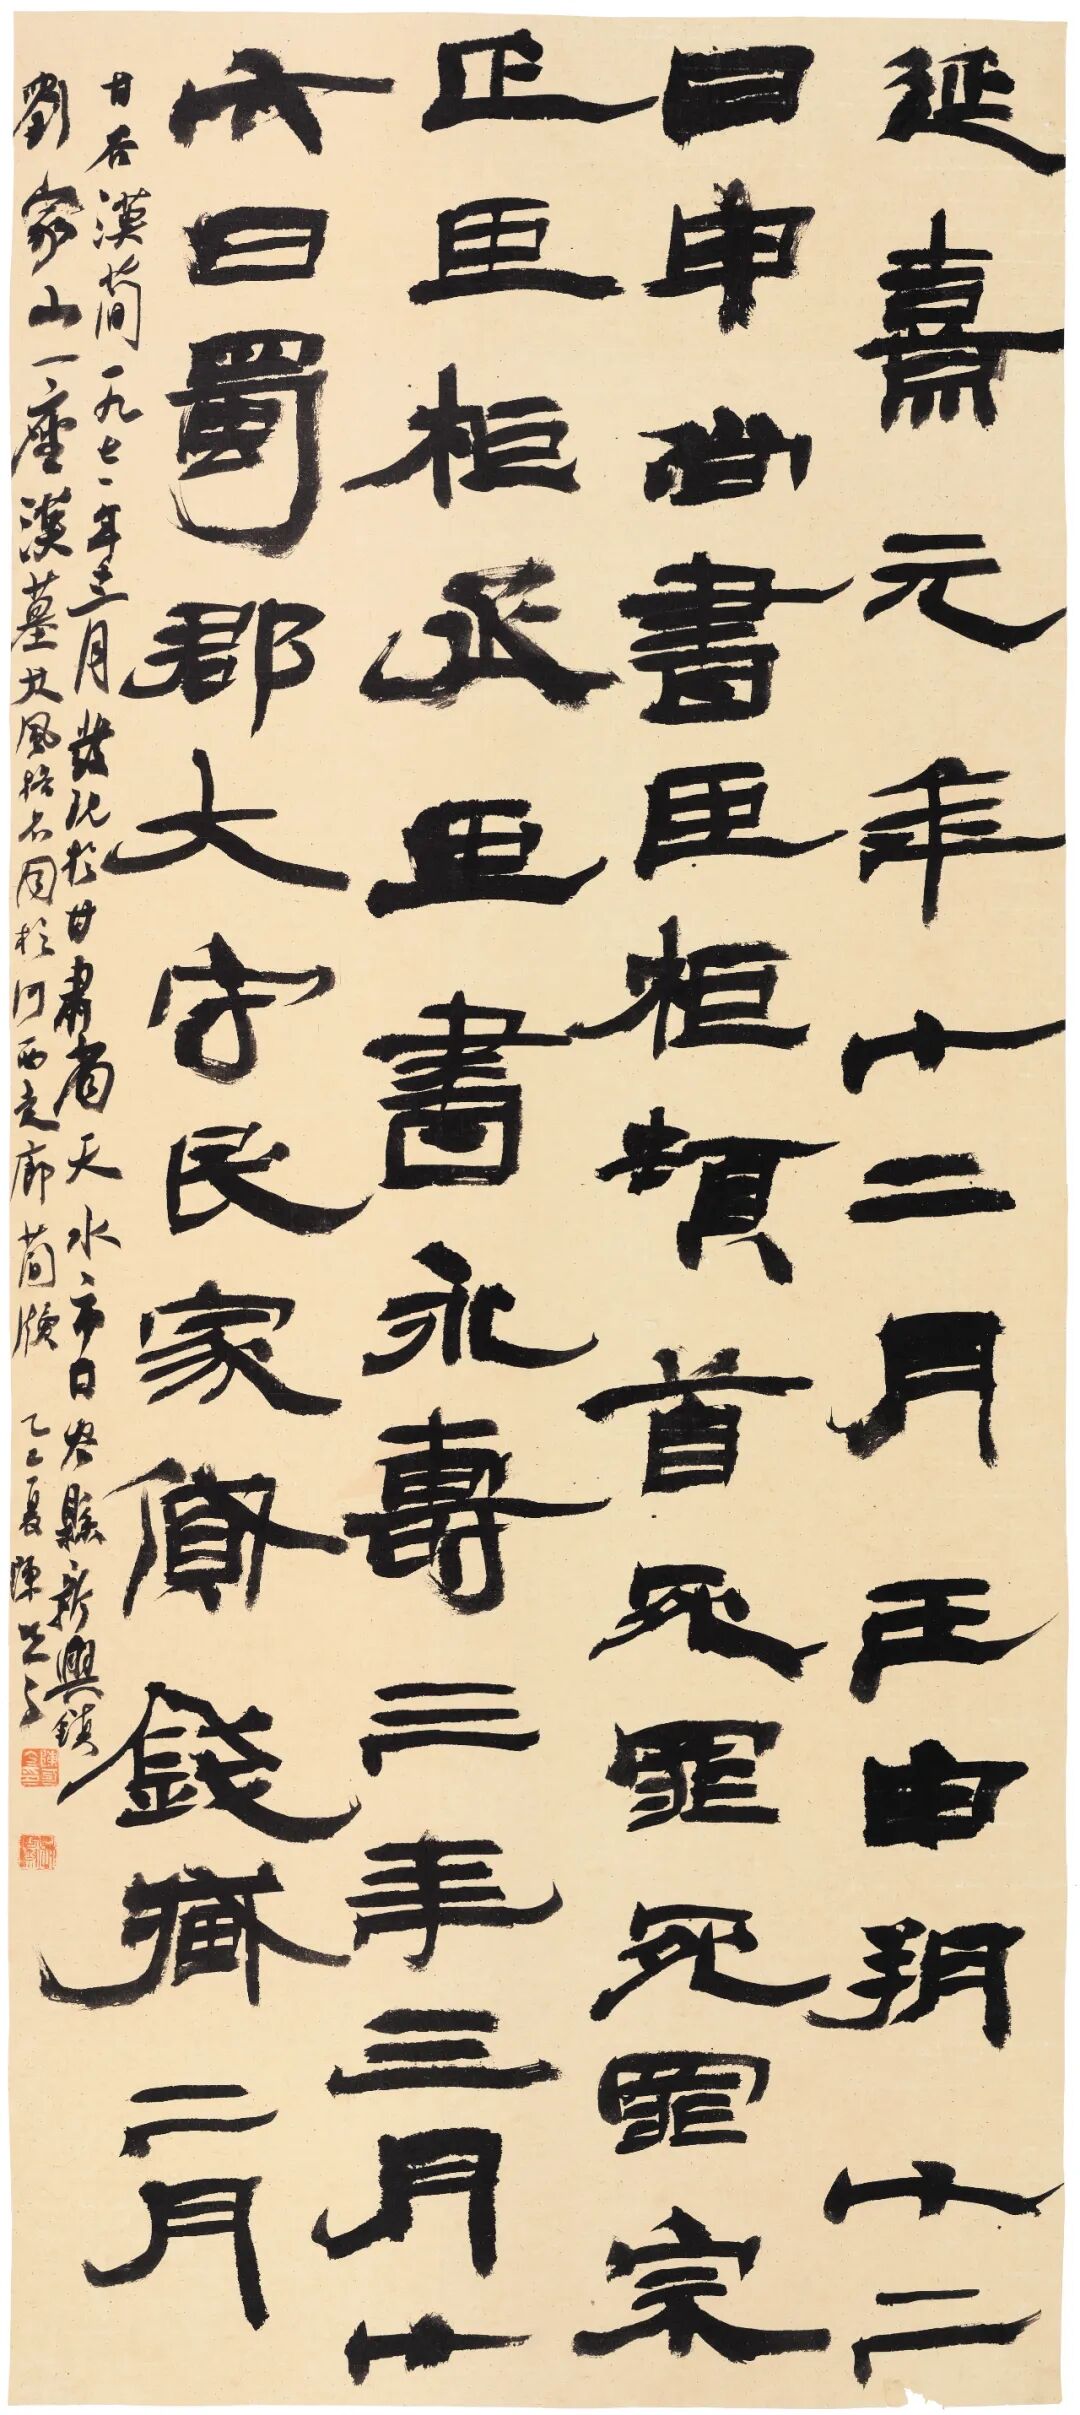 延熹元年十二月壬申朔十二
日申尚書臣柜頓首死罪死罪宗
正臣柜丞臣書永壽三年三月廿
六日蜀郡大守民家貸錢二月
甘谷漢簡一九七一年十二月發現於甘肅省天水市甘谷縣新興鎮
劉家山一座漢墓其風格不同於河西走廊簡牘 乙巳夏陳